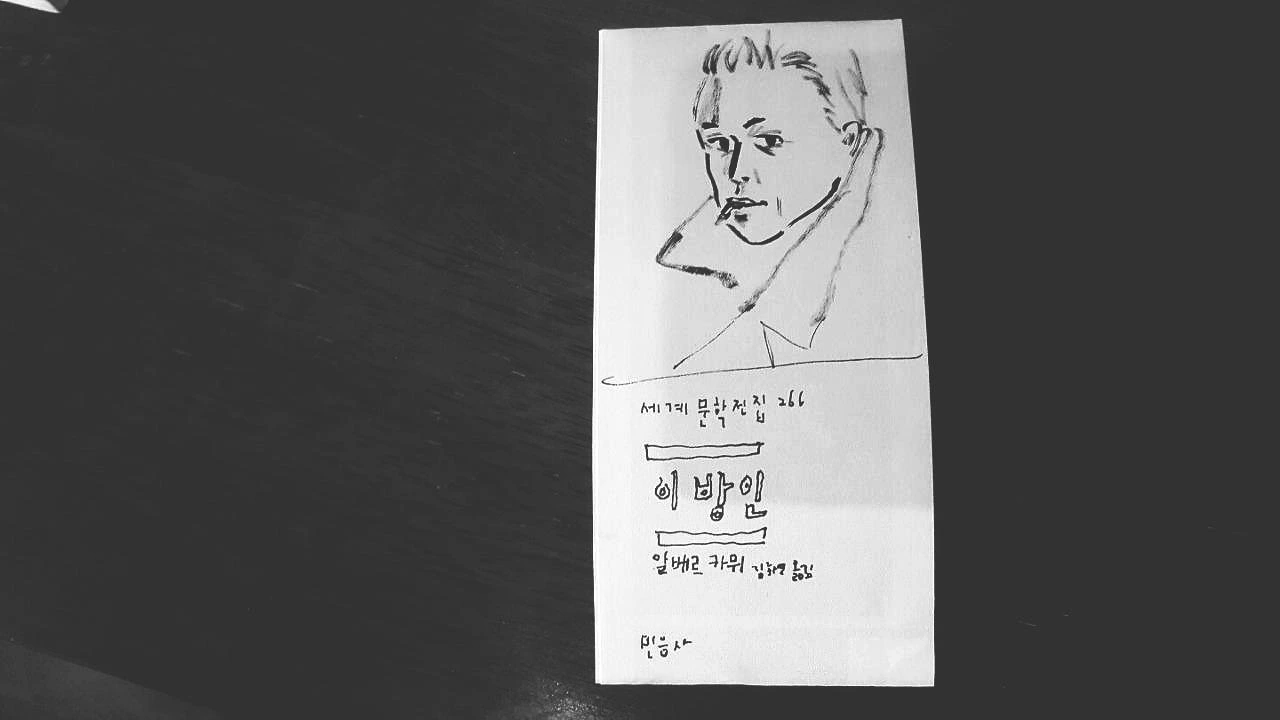 세계 문학전집 266
이방인
알베르 카뮈 김화영 옮김
민음사